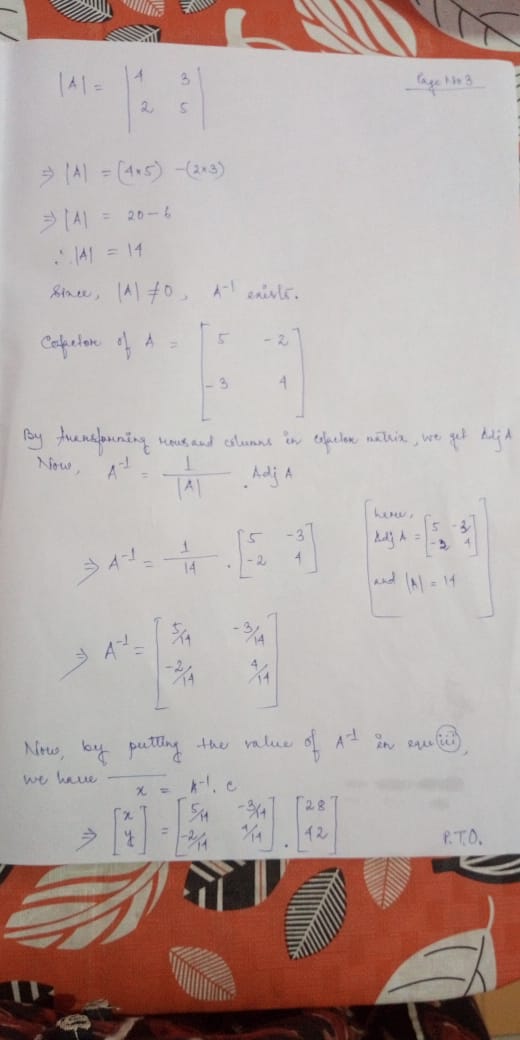 Page No 3
|A| = | 4 3 |
| 2 5 |
⇒ |A| = (4×5) - (2×3)
⇒ |A| = 20 - 6
∴ |A| = 14
Since, |A| ≠ 0, A⁻¹ exists.
Cofactor of A = [ 5 -2 ]
[ -3 4 ]
By transforming rows and columns in cofactor matrix, we get Adj A
Now, A⁻¹ = 1/|A| . Adj A
⇒ A⁻¹ = 1/14 . [ 5 -3 ]
[ -2 4 ]
[ here,
Adj A = [ 5 -3 ]
[ -2 4 ]
and |A| = 14 ]
⇒ A⁻¹ = [ 5/14 -3/14 ]
[ -2/14 4/14 ]
Now, by putting the value of A⁻¹ in equ (iii),
we have
x = A⁻¹. C
⇒ [ x ] = [ 5/14 -3/14 ] . [ 28 ]
[ y ] [ -2/14 4/14 ] [ 42 ]
P.T.O.